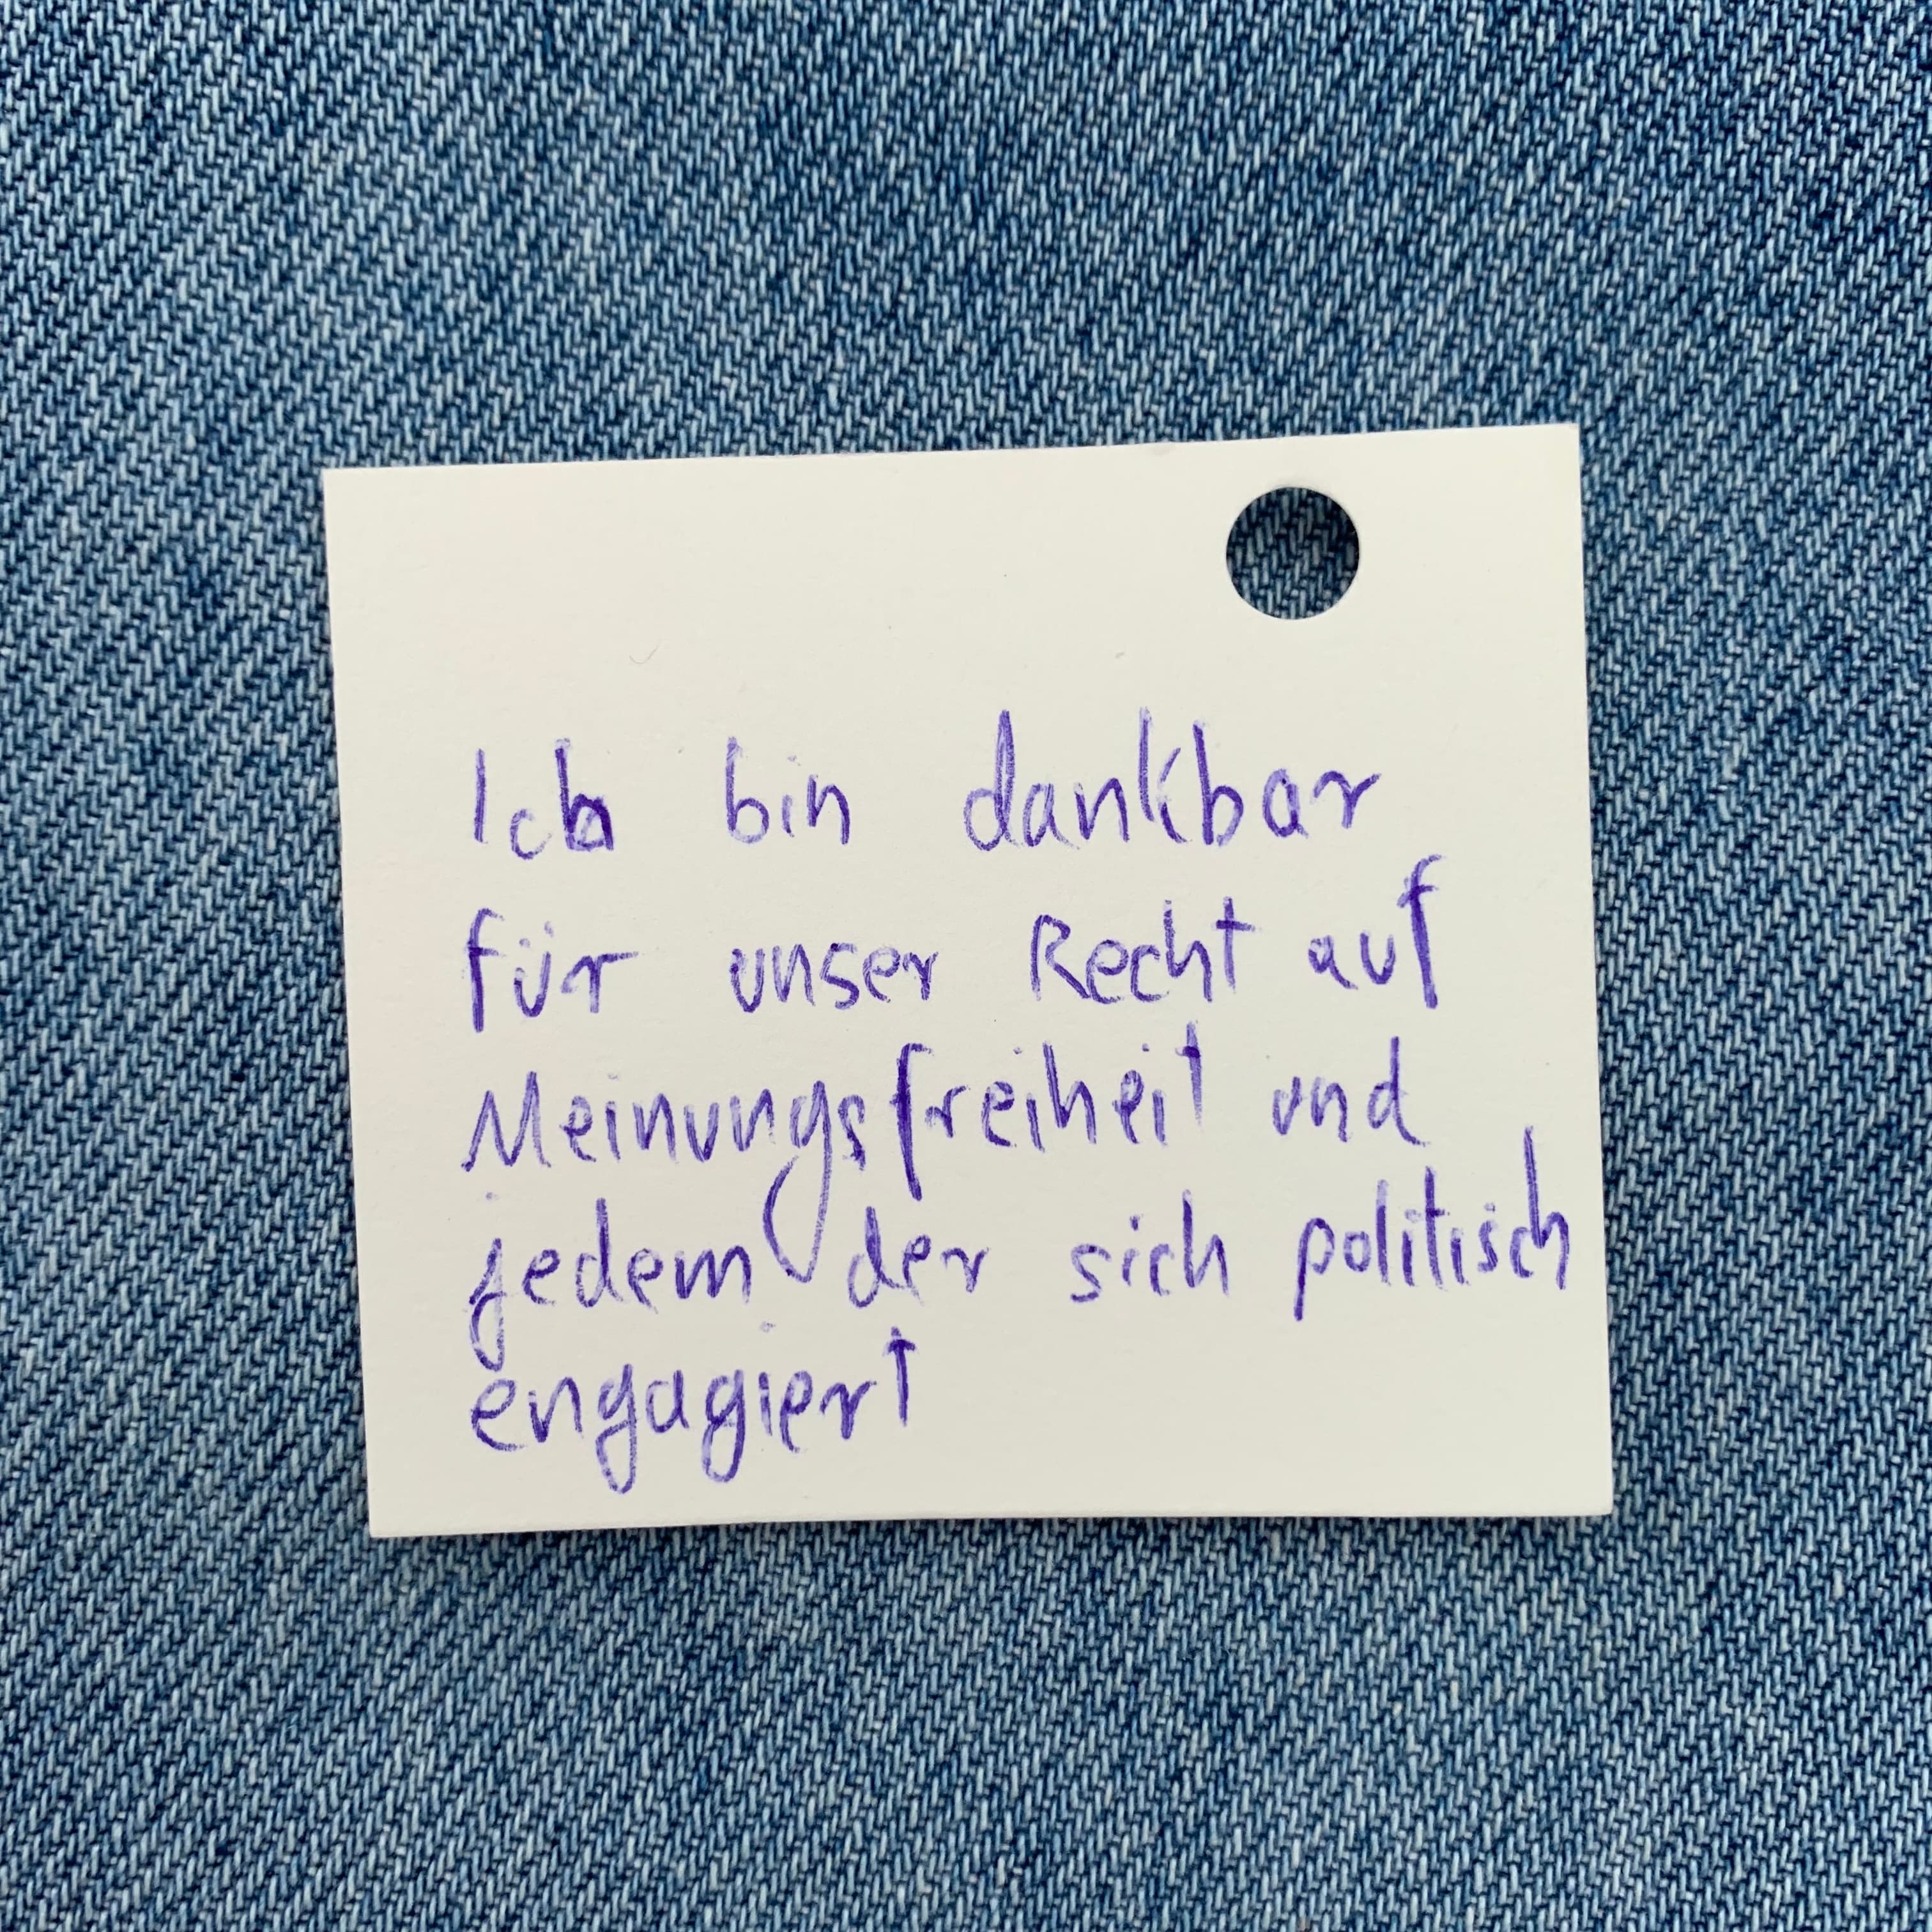 Ich bin dankbar
für unser Recht auf
Meinungsfreiheit und
jedem der sich politisch
engagiert